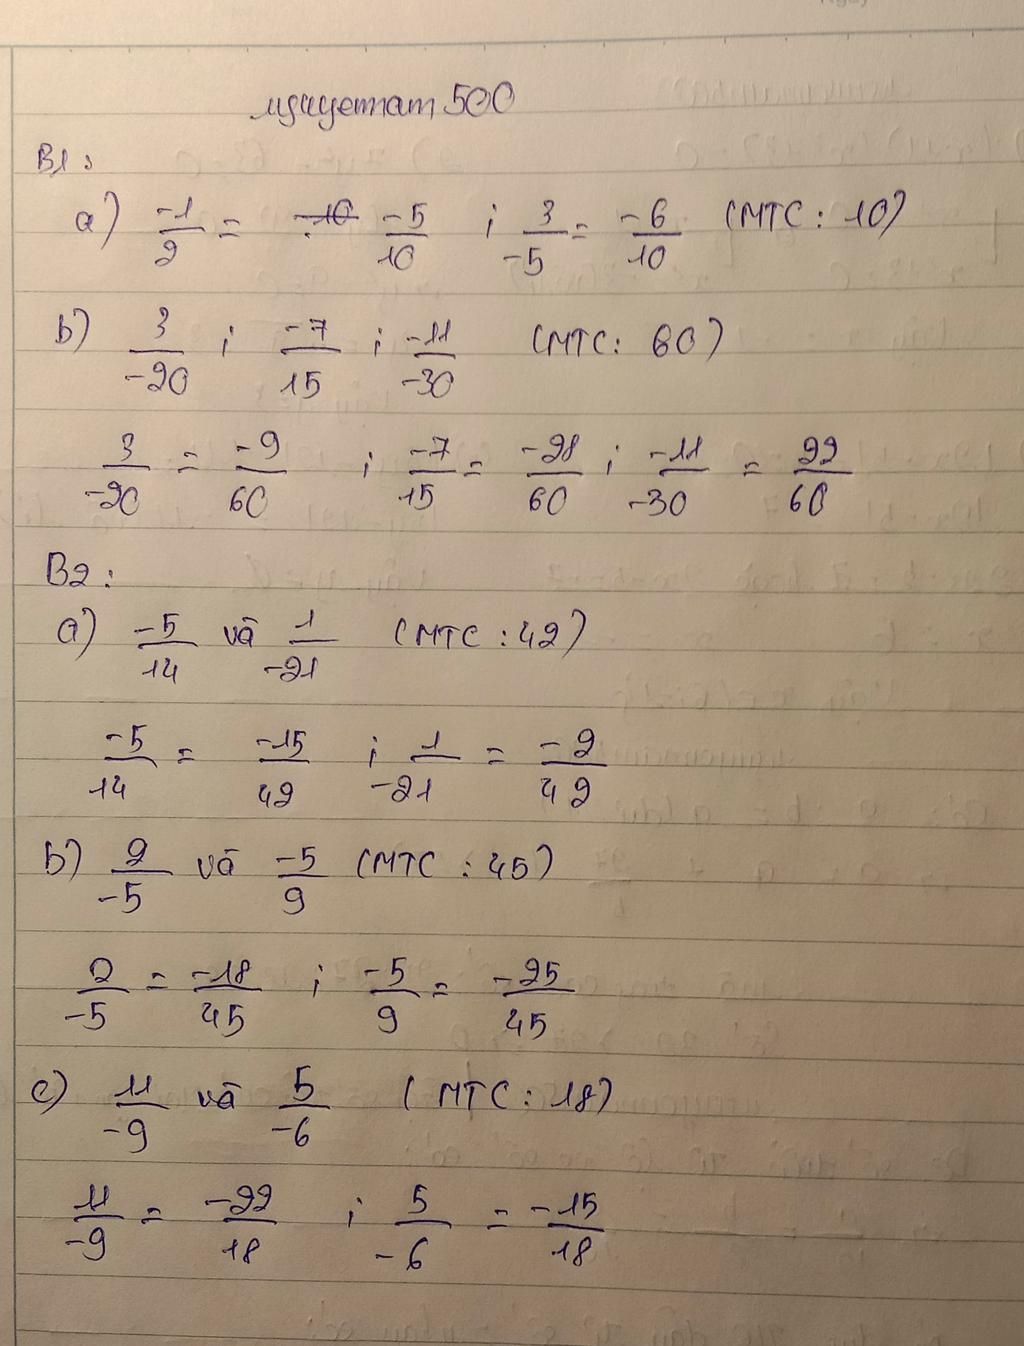 муачетат 500
B1:
a) -1/2 = -10 -5/10 ; 3/-5 = -6/10 (MTC: 10)
b) 3/-20 ; -7/15 ; -11/-30 (MTC: 60)
3/-20 = -9/60 ; -7/15 = -28/60 ; -11/-30 = 22/60
B2:
a) -5/14 và 1/-21 (MTC : 42)
-5/14 = -15/42 ; 1/-21 = -2/42
b) 2/-5 và -5/9 (MTC : 45)
2/-5 = -18/45 ; -5/9 = -25/45
c) 11/-9 và 5/-6 (MTC : 18)
11/-9 = -22/18 ; 5/-6 = -15/18